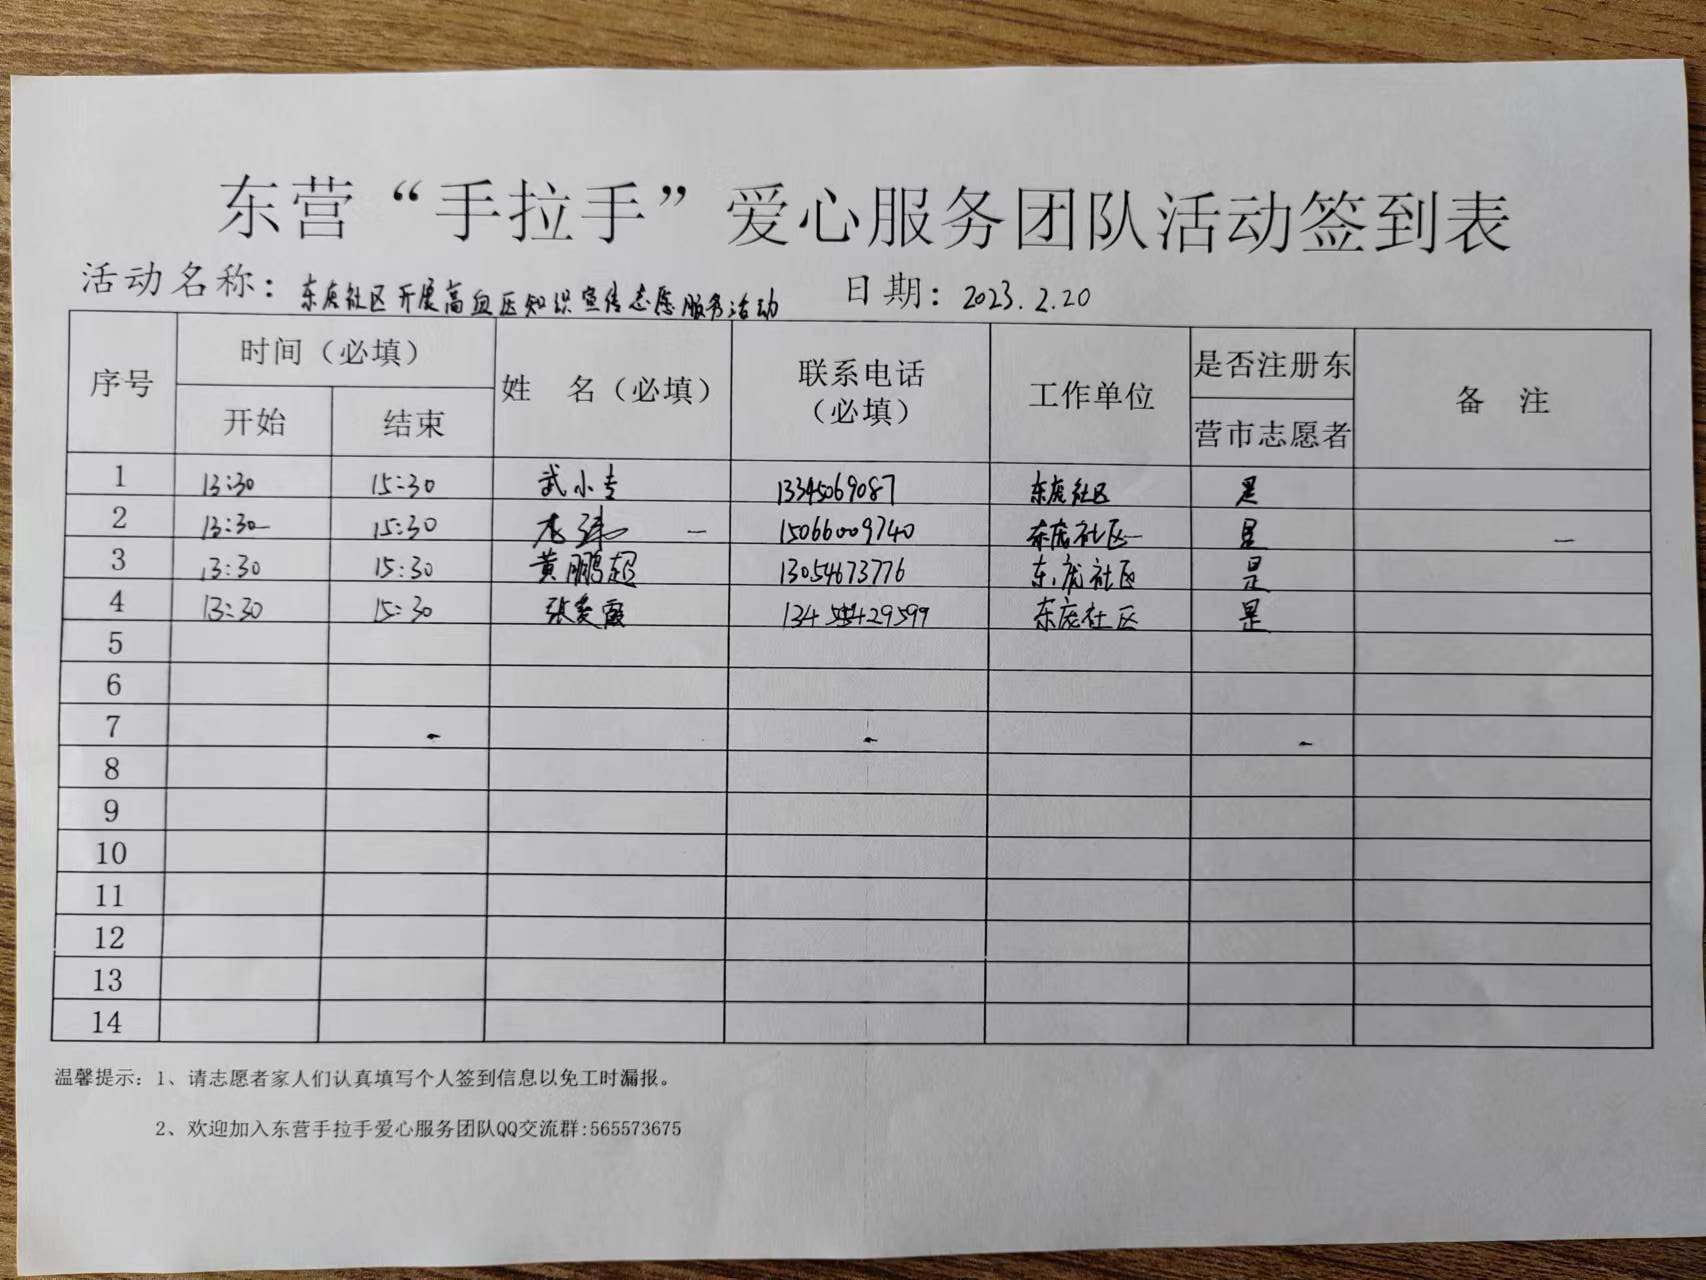 东营“手拉手”爱心服务团队活动签到表
活动名称：东虎社区开展高血压知识宣传志愿服务活动 日期：2023.2.20
序号 时间（必填） 姓 名（必填） 联系电话（必填） 工作单位 是否注册东营市志愿者 备 注
开始 结束
1 13:30 15:30 武小 13345069087 社区 是
2 13:30 15:30 15066009740 社区 是
3 13:30 15:30 黄鹏超 13054673776 社区 是
4 13:30 15:30 张爱霞 社区 是
5
6
7
8
9
10
11
12
13
14
温馨提示：1、请志愿者家人们认真填写个人签到信息以免工时漏报。
2、欢迎加入东营手拉手爱心服务团队QQ交流群:565573675